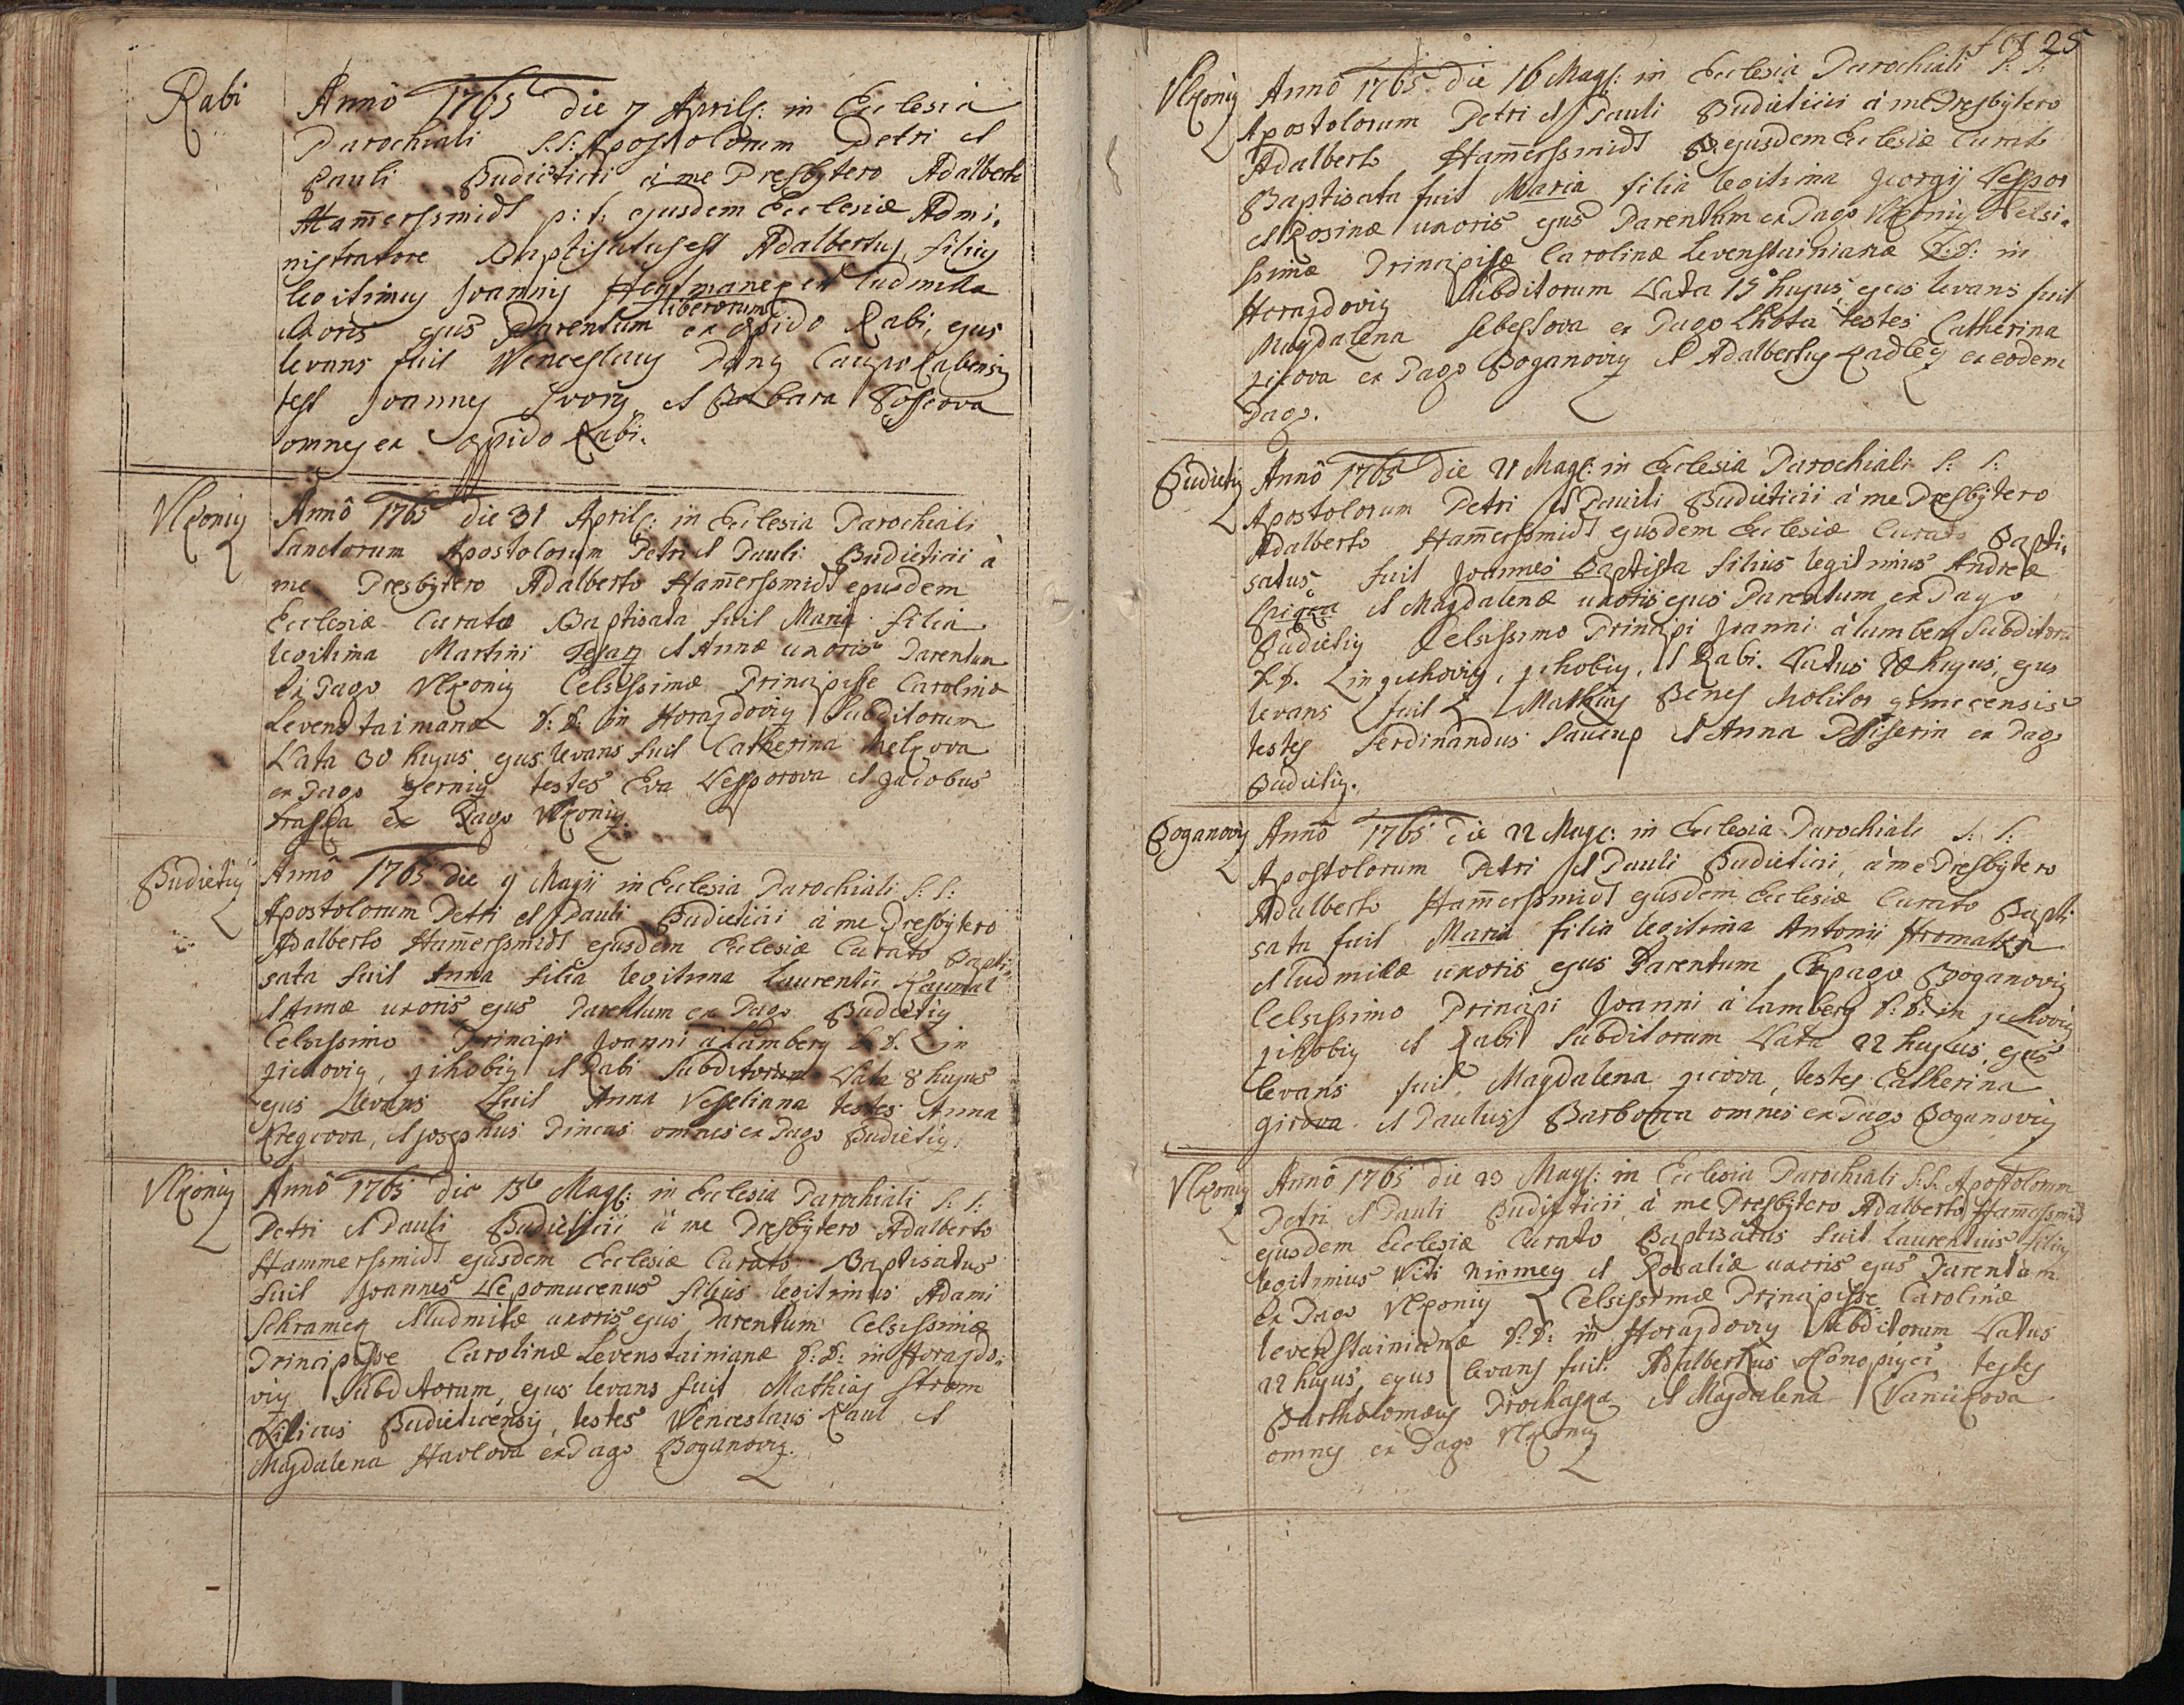 Rabi
Annô 1765 die 7 Aprilis: in Ecclesia
Parochiali S:S: Apostolorum Petri et
Pauli Budieticii à me Presbytero Adalberto
Ham̄erssmidt p: t: ejusdem Ecclesiæ Admi,
nistratore Baptisatus est Adalbertus filius
legitimus Joannis et Ludmilla
uxoris ejus Parentum liberorum ex opido Rabi, ejus
levans fuit Wenceslaus Caupo Rabensis
test Joannes et Barbara
omnes ex opido Rabi.
Vlkoniz
Annô 1765 die 31 Aprilis: in Ecclesia Parochiali
Sanctorum Apostolorum Petri et Pauli Budieticii à
me Presbytero Adalberto Ham̄erssmidt ejusdem
Ecclesiæ Curato Baptisata fuit Maria filia
legitima Martini et Annæ uxoris Parentum
Ex Pago Vlkoniz Celsissimæ Principisse Carolinæ
Levenstainianæ D: D: in Horazdoviz Subditorum
Nata 30 hujus ejus levans fuit Catherina
ex Pago testes Eva Nessporova et Jacobus
ex Pago Vlkoniz.
Budietiz
Annô 1765 die 9 Majii in Ecclesia Parochiali S: S:
Apostolorum Petri et Pauli Budieticii à me Presbytero
Adalberto Ham̄erssmidt ejusdem Ecclesiæ Curato Bapti,
sata fuit Anna filia legitima Laurentii
et Annæ uxoris ejus Parentum ex Pago Budietiz
Celsissimo Principi Joanni à Lamberg D D. in
zichoviz, zihobiz et Rabi Subditorum Nata 8 hujus
ejus Levans fuit Anna testes Anna
et Josephus omnes ex Pago Budietiz.
Vlkoniz
Annô 1765 die 15 Majis: in Ecclesia Parochiali S: S:
Petri et Pauli Budieticii à me Presbytero Adalberto
Hammerssmidt ejusdem Ecclesiæ Curato Baptisatus
fuit Joannes Nepomucenus filius legitimus Adami
Schramek et Ludmilæ uxoris ejus Parentum Celsissimæ
Principisse Carolinæ Levenstainianæ D: D: in Horazdo,
viz Subditorum, ejus levans fuit Mathias
Budieticensis, testes Wenceslaus et
Magdalena Havlova ex Pago Boganoviz.
25
Vlkoniz
Annô 1765 die 16 Majis: in Ecclesia Parochiali S: S:
Apostolorum Petri et Pauli Budieticii à me Presbytero
Adalberto Ham̄erssmidt ejusdem Ecclesiæ Curato
Baptisata fuit Maria filia legitima Georgij Nesspor
et Rosinæ uxoris ejus Parenthm ex Pago Vlkoniz Celsi,
ssimæ Principisse Carolinæ Levenstainianæ D: D: in
Horazdoviz Subditorum Nata 15 hujus, ejus levans fuit
Magdalena Sebestova ex Pago Lhota testes Catherina
ex Pago Boganoviz et Adalbertus ex eodem
Pago.
Budietiz
Annô 1765 die 21 Majis: in Ecclesia Parochiali S: S:
Apostolorum Petri et Pauli Budieticii à me Presbytero
Adalberto Ham̄erssmidt ejusdem Ecclesiæ Curato Bapti,
satus fuit Joannes Baptista filius legitimus Andreæ
et Magdalenæ uxoris ejus Parentum ex Pago
Budietiz Celsissimo Principi Joanni à Lamberg Subditorū
D. D. in zichoviz, zihobiz, et Rabi. Natus hujus, ejus
levans fuit Mathias Benes Molitor
testes Ferdinandus et Anna ex Pago
Budietiz.
Boganoviz
Annô 1765 die 22 Majis: in Ecclesia Parochiali S: S:
Apostolorum Petri et Pauli Budieticii, à me Presbytero
Adalberto Ham̄erssmidt ejusdem Ecclesiæ Curato Bapti
sata fuit Maria filia legitima Antonii Hromatka
et Ludmilæ uxoris ejus Parentum Ex pago Boganoviz
Celsissimo Principi Joanni à Lamberg D: D: in zichoviz
zihobiz et Rabi Subditorum Nata 22 hujus, ejus
levans fuit Magdalena testes Catherina
et Paulus omnes ex Pago Boganoviz
Vlkoniz
Annô 1765 die 23 Majis: in Ecclesia Parochiali S: S: Apostolorum
Petri et Pauli Budieticii à me Presbytero Adalberto Ham̄erssmid
ejusdem Ecclesiæ Curato Baptisatus fuit Laurentius filius
legitimus Viti et Rosaliæ uxoris ejus Parentum
Ex Pago Vlkoniz Celsissimæ Principisse Carolinæ
levenstainianæ D: D: in Horazdoviz Subditorum Natus
22 hujus, ejus levans fuit Adalbertus testes
Bartholomæus Prochaska et Magdalena
omnes ex Pago Vlkoniz